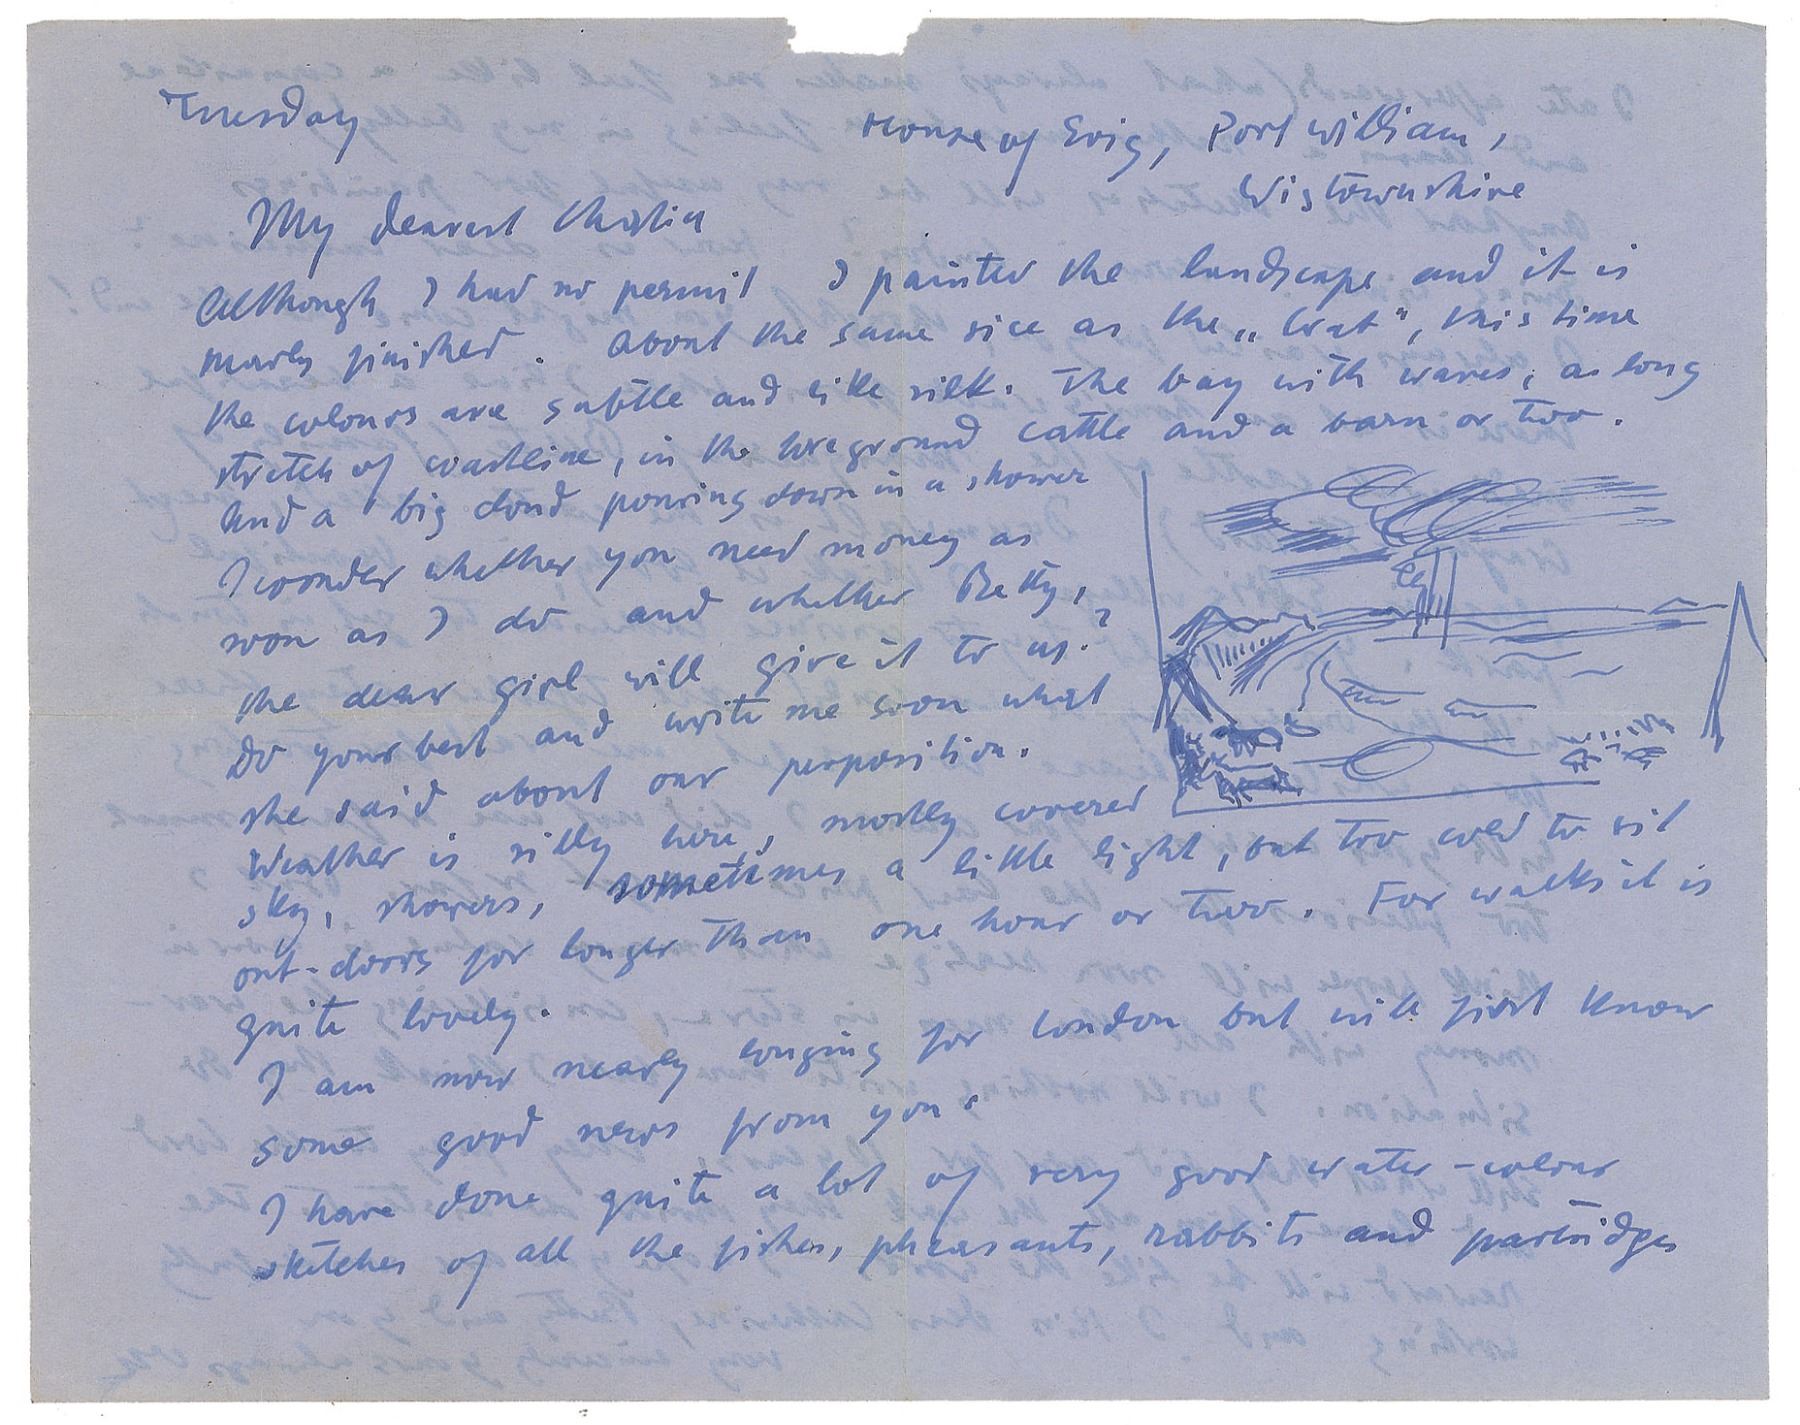 Tuesday
House of Evig, Port William,
Wistownshire
My dearest
Although I had no permit I painted the landscape and it is
nearly finished. About the same sice as the „Crab", this time
the colours are subtle and like silk. The bay with waves, a long
stretch of coastline, in the foreground cattle and a barn or two.
And a big cloud pouring down in a shower
I wonder whether you need money as
soon as I do and whether Betty,
the dear girl will give it to us?
Do your best and write me soon what
she said about our perposition.
Weather is silly here, mostly covered
sky, showers, sometimes a little light, but too cold to sit
out-doors for longer than one hour or two. For walks it is
quite lovely.
I am now nearly longing for London but will first know
some good news from you.
I have done quite a lot of very good water-colour
sketches of all the fishes, pheasants, rabbits and partridges